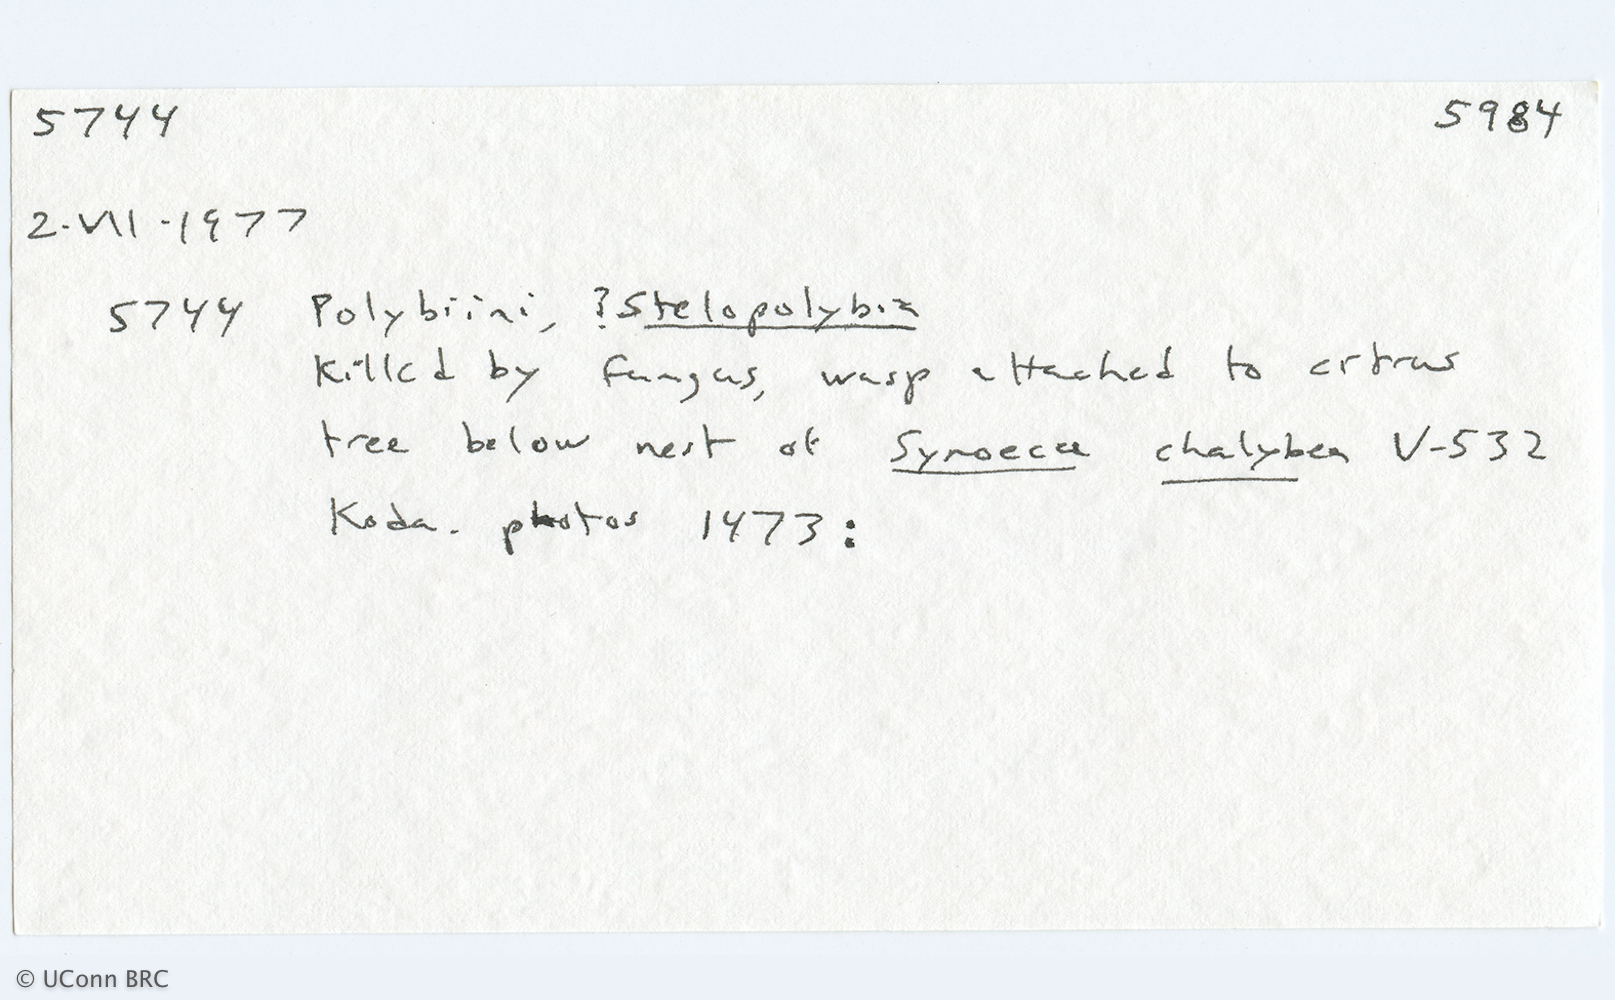 5744 5984
2-VII-1977
5744 Polybiini, ?Stelopolybia
Killed by fungus, wasp attached to citrus
tree below nest of Synoeca chalybea V-532
Koda. photos 1473:
© UConn BRC